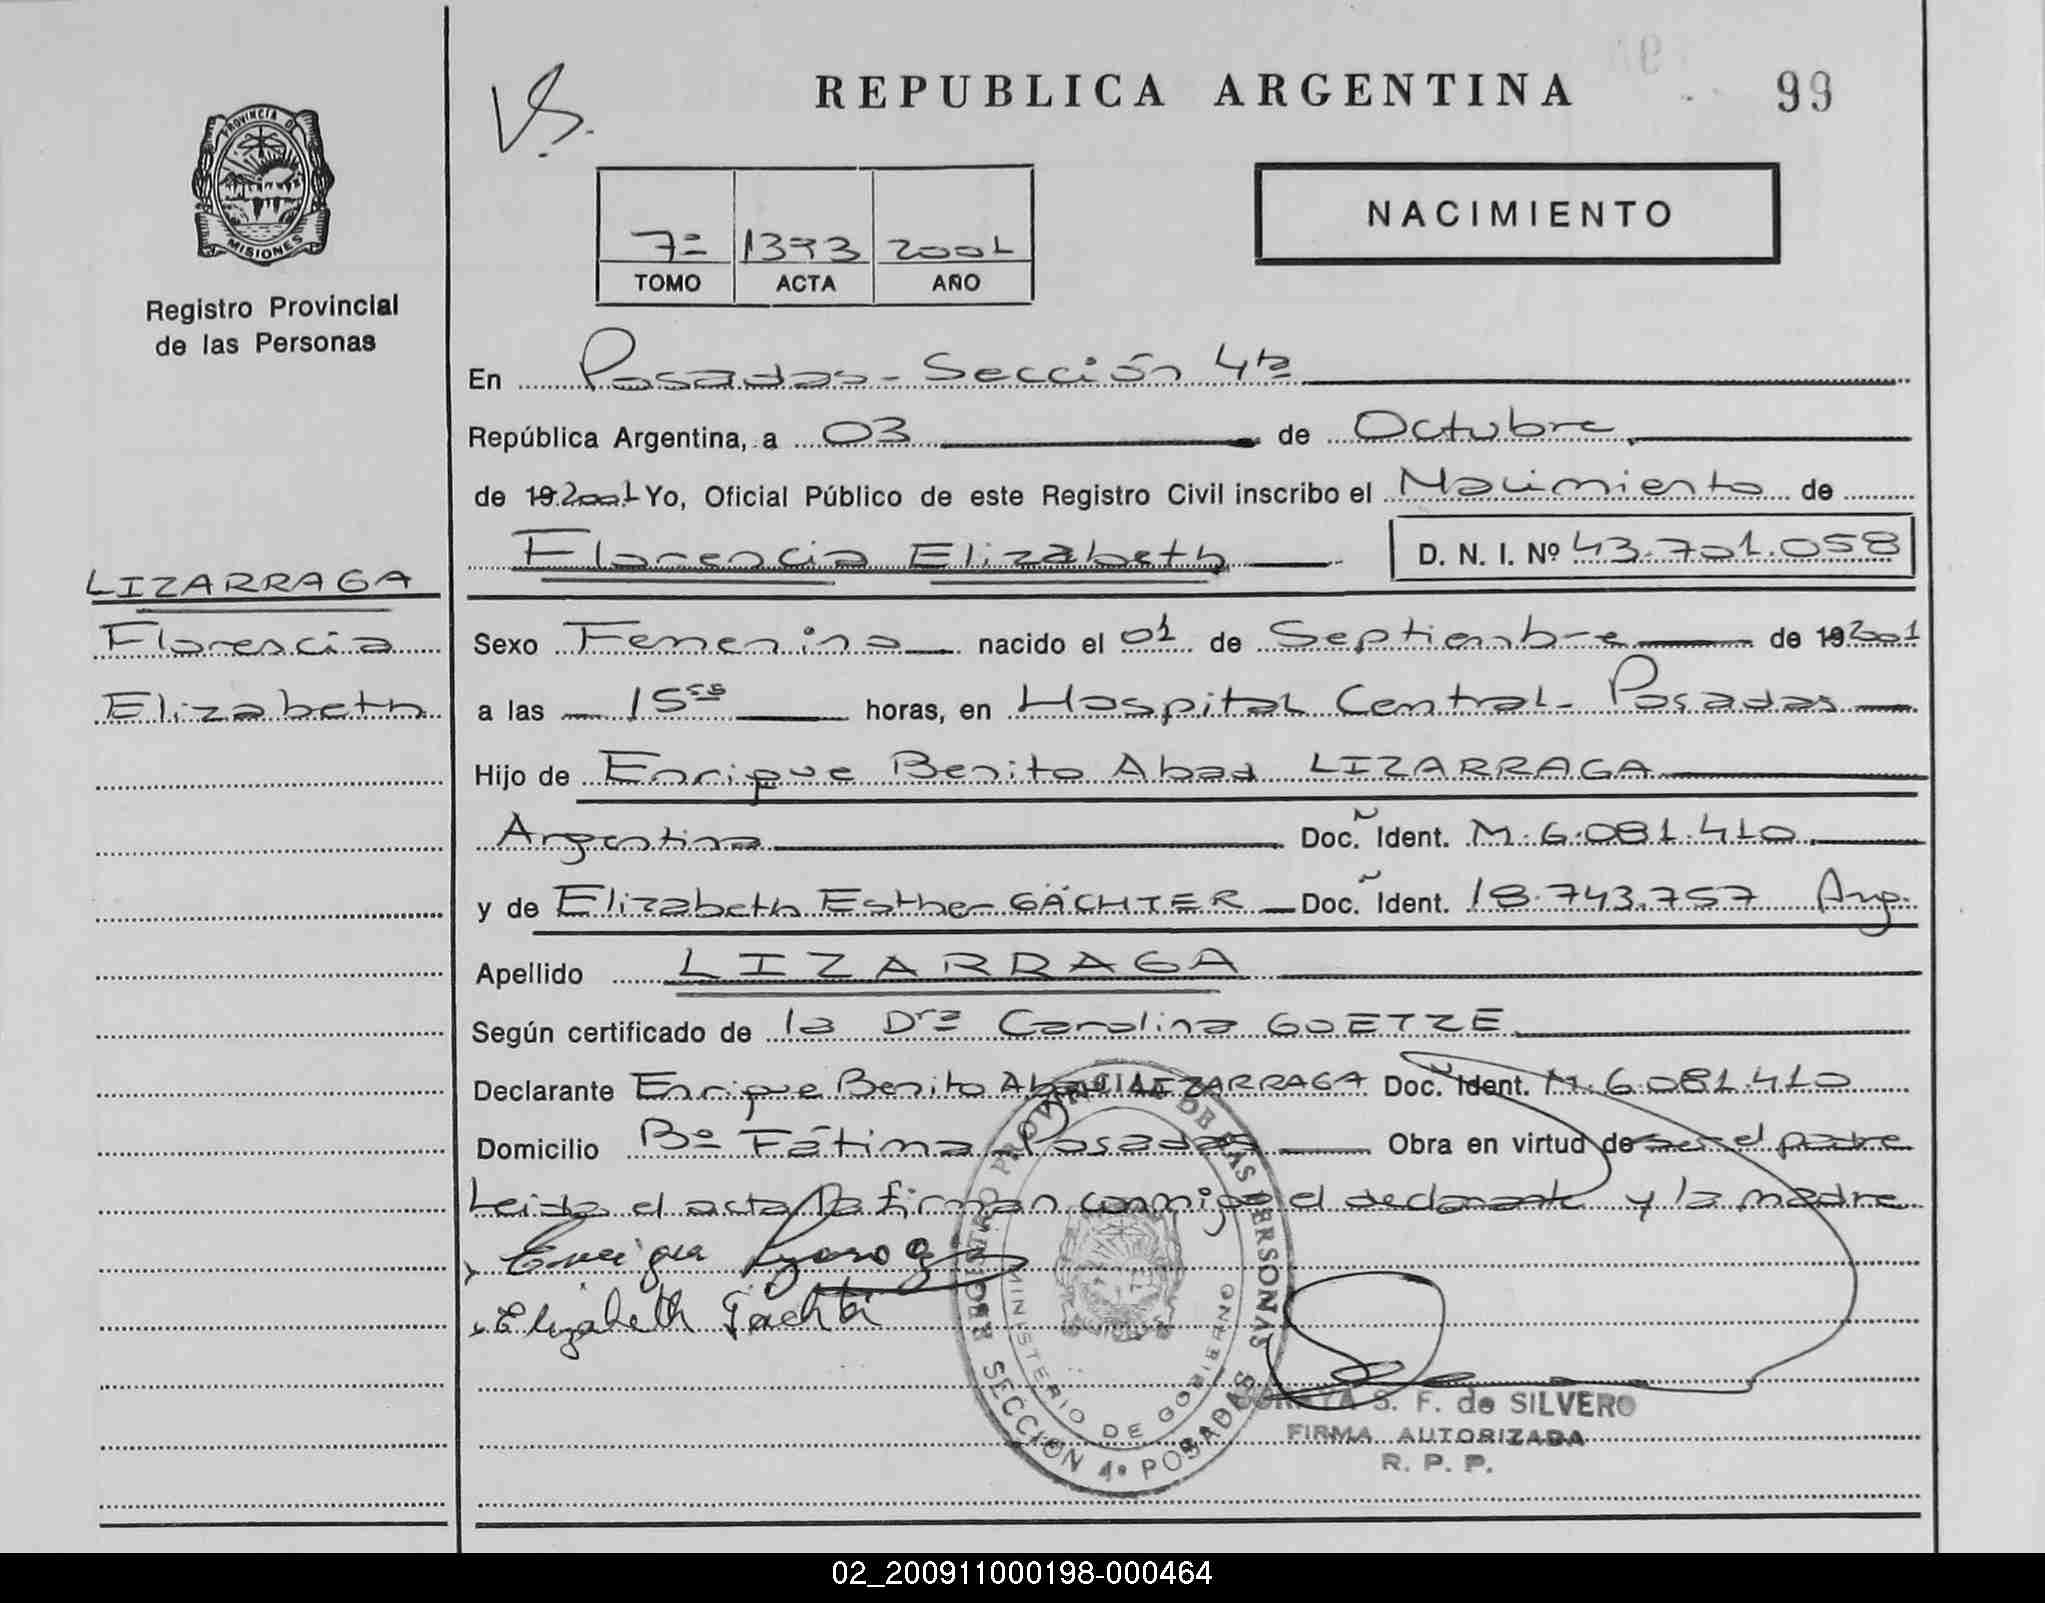 REPUBLICA ARGENTINA
99
VS.
NACIMIENTO
PROVINCIA DE
MISIONES
Registro Provincial
de las Personas
7º 1393 2001
TOMO ACTA AÑO
En Posadas - Sección 4ta
República Argentina, a 03 de Octubre
de 19 2001 Yo, Oficial Público de este Registro Civil inscribo el Nacimiento de
Florencia Elizabeth D. N. I. Nº 43.701.058
LIZARRAGA
Florencia
Elizabeth
Sexo Femenino nacido el 01 de Septiembre de 19 2001
a las 15⁵⁵ horas, en Hospital Central - Posadas
Hijo de Enrique Benito Abad LIZARRAGA
Argentina Doc. Ident. M. 6.081.410
y de Elizabeth Esther GÄCHTER Doc. Ident. 18.743.757 Arg.
Apellido LIZARRAGA
Según certificado de la Dra Carolina GOETZE
Declarante Enrique Benito Abad LIZARRAGA Doc. Ident. M. 6.081.410
Domicilio Bº Fátima - Posadas Obra en virtud de ser el padre
Leida el acta la firman conmigo el declarante y la madre
Enrique
Elizabeth Gächter
REGISTRO PROVINCIAL DE LAS PERSONAS
MINISTERIO DE GOBIERNO
SECCION 4º POSADAS
S. F. de SILVERO
FIRMA AUTORIZADA
R. P. P.
02_200911000198-000464